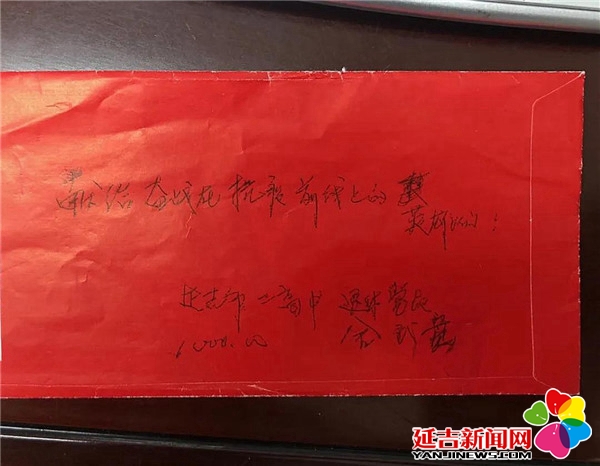 献给奋战在抗疫前线上的
英雄们：
延吉市二高中 退休党员
1000.00
延吉新闻网
YANJINEWS.COM